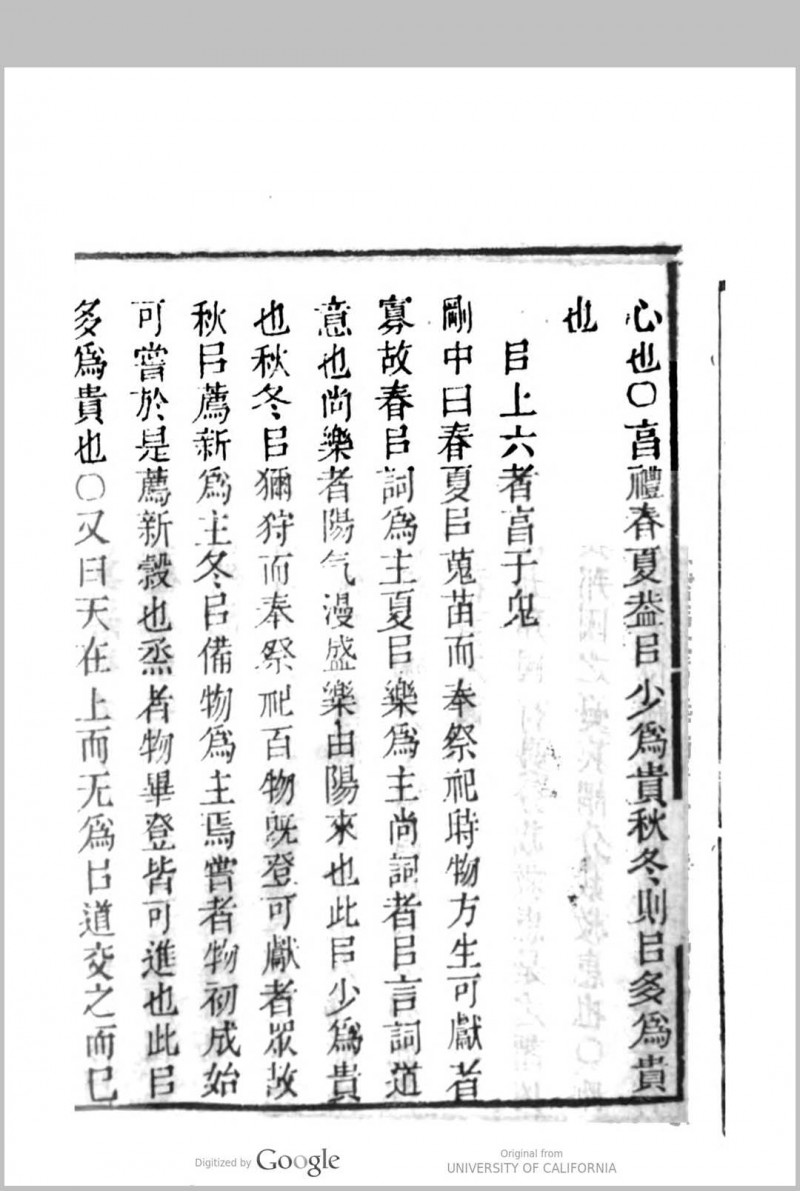 心也○亯禮春夏葢㠯少爲貴秋冬則㠯多爲貴
也
㠯上六者亯于鬼
剛中曰春夏㠯蒐苗而奉祭祀時物方生可獻者
寡故春㠯詞爲主夏㠯樂爲主尚詞者㠯言詞道
意也尚樂者陽气漫盛樂由陽來也此㠯少爲貴
也秋冬㠯獮狩而奉祭祀百物旣登可獻者眾故
秋㠯薦新爲主冬㠯備物爲主焉嘗者物初成始
可嘗於是薦新穀也烝者物畢登皆可進也此㠯
多爲貴也○又曰天在上而无爲㠯道交之而已
Digitized by Google
Original from
UNIVERSITY OF CALIFORNIA